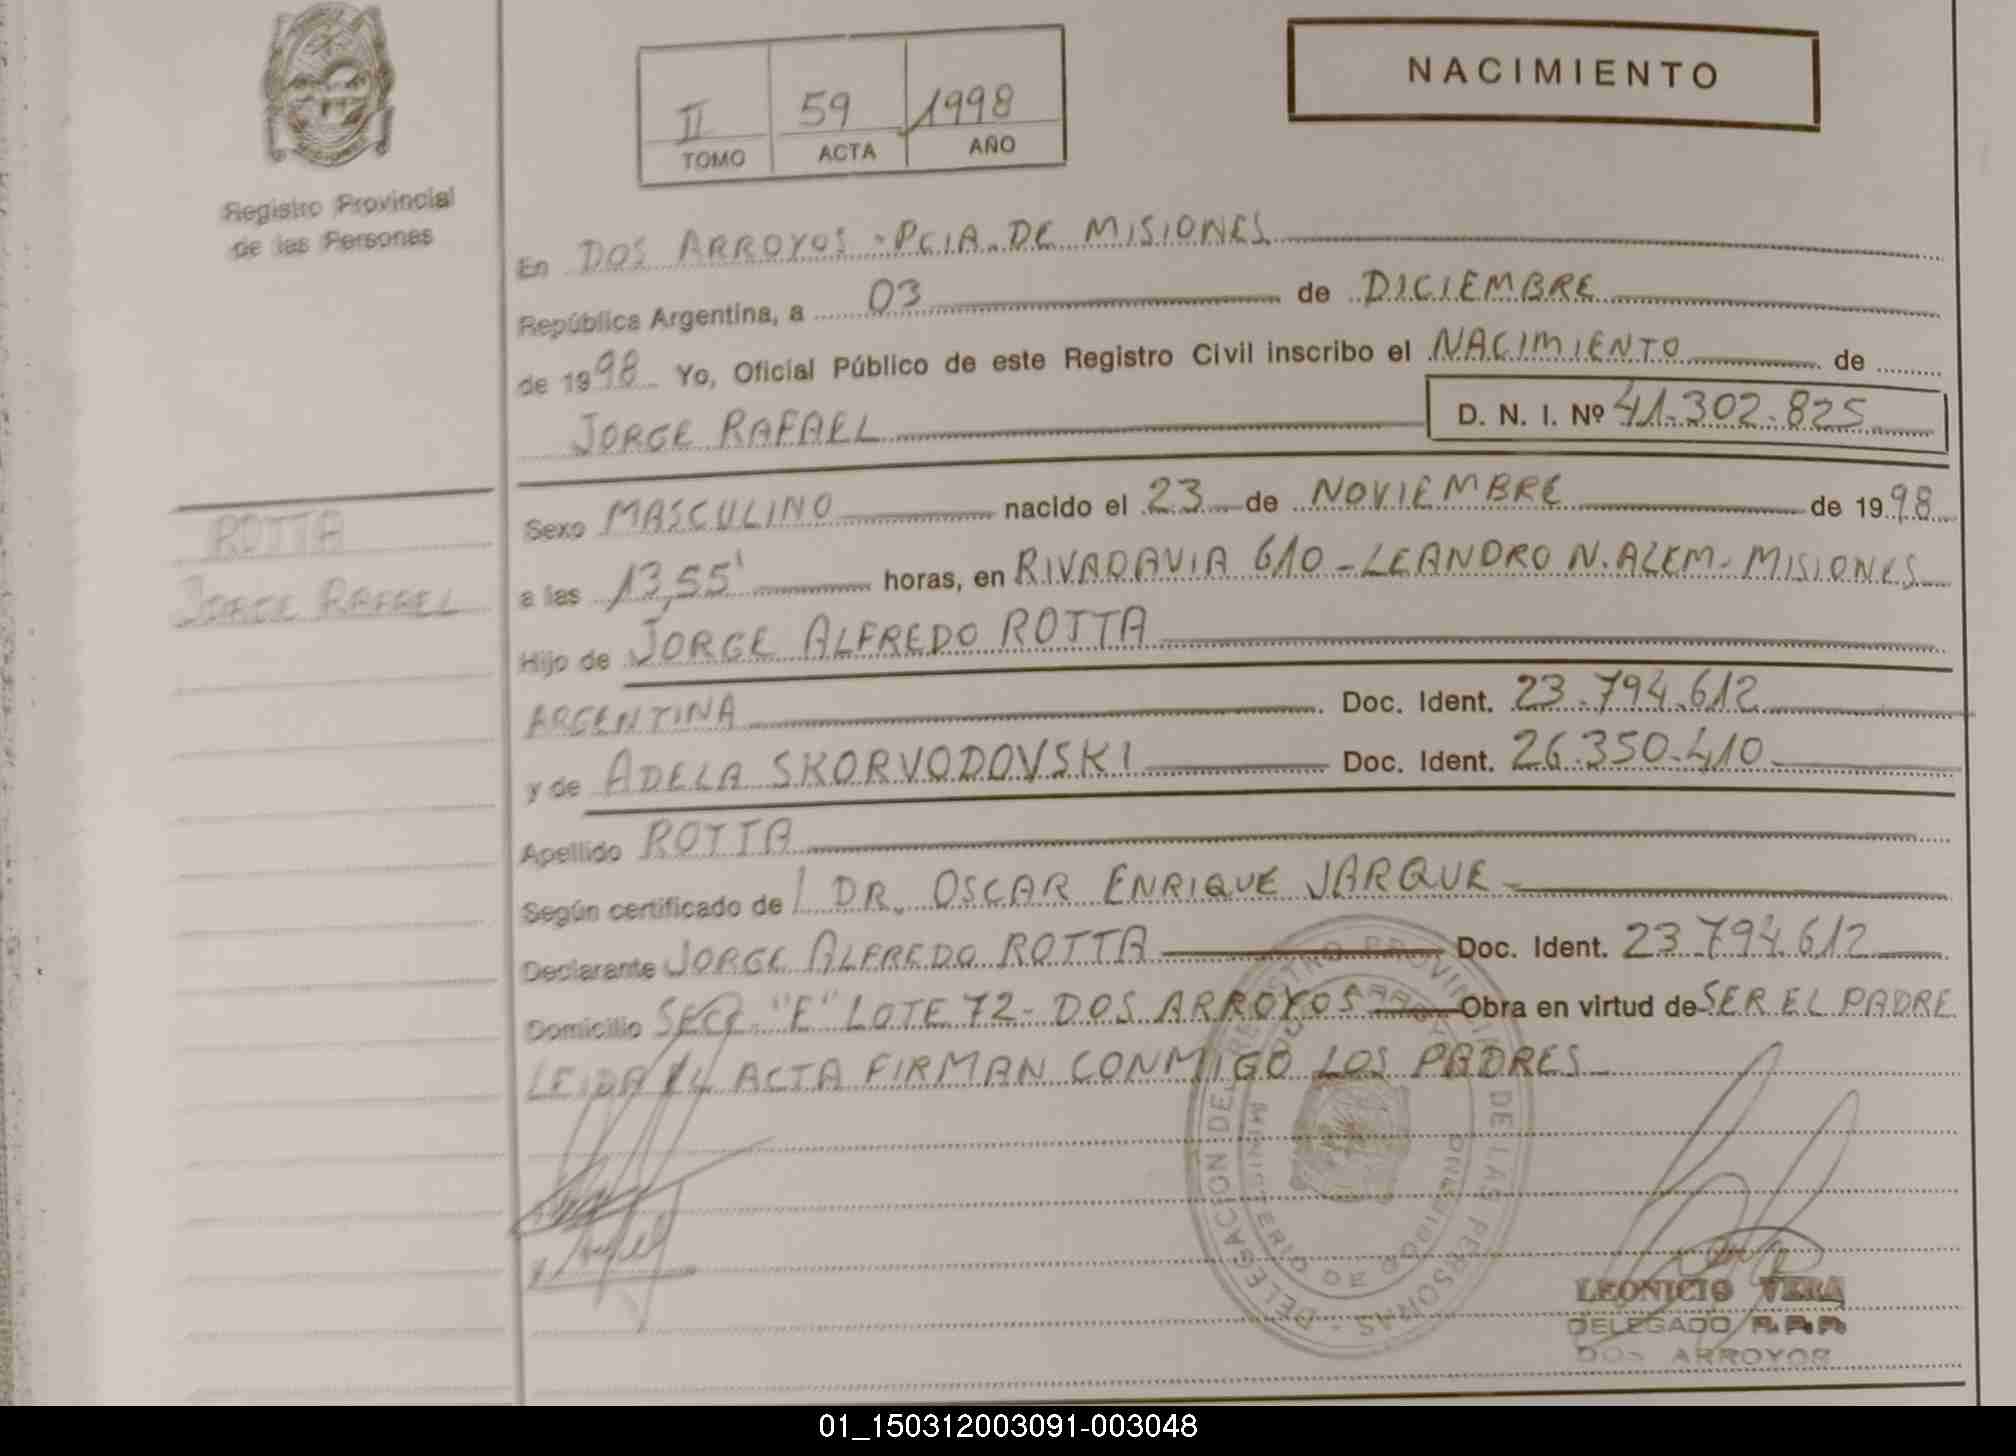 Registro Provincial
de las Personas
II 59 1998
TOMO ACTA AÑO
NACIMIENTO
En DOS ARROYOS - PCIA. DE MISIONES
República Argentina, a 03 de DICIEMBRE
de 1998 Yo, Oficial Público de este Registro Civil inscribo el NACIMIENTO de
JORGE RAFAEL D. N. I. Nº 41.302.825
ROTTA
JORGE RAFAEL
Sexo MASCULINO nacido el 23 de NOVIEMBRE de 1998
a las 13,55' horas, en RIVADAVIA 610 - LEANDRO N. ALEM - MISIONES
Hijo de JORGE ALFREDO ROTTA
ARGENTINA Doc. Ident. 23.794.612
y de ADELA SKORVODOVSKI Doc. Ident. 26.350.410
Apellido ROTTA
Según certificado de DR. OSCAR ENRIQUE JARQUE
Declarante JORGE ALFREDO ROTTA Doc. Ident. 23.794.612
Domicilio SECC. "E" LOTE 72 - DOS ARROYOS Obra en virtud de SER EL PADRE
LEIDA EL ACTA FIRMAN CONMIGO LOS PADRES
DELEGACION DEL REGISTRO PROVINCIAL DE LAS PERSONAS
MINISTERIO DE GOBIERNO
DOS ARROYOS
LEONICIO VERA
DELEGADO R.P.P.
DOS ARROYOS
01_150312003091-003048